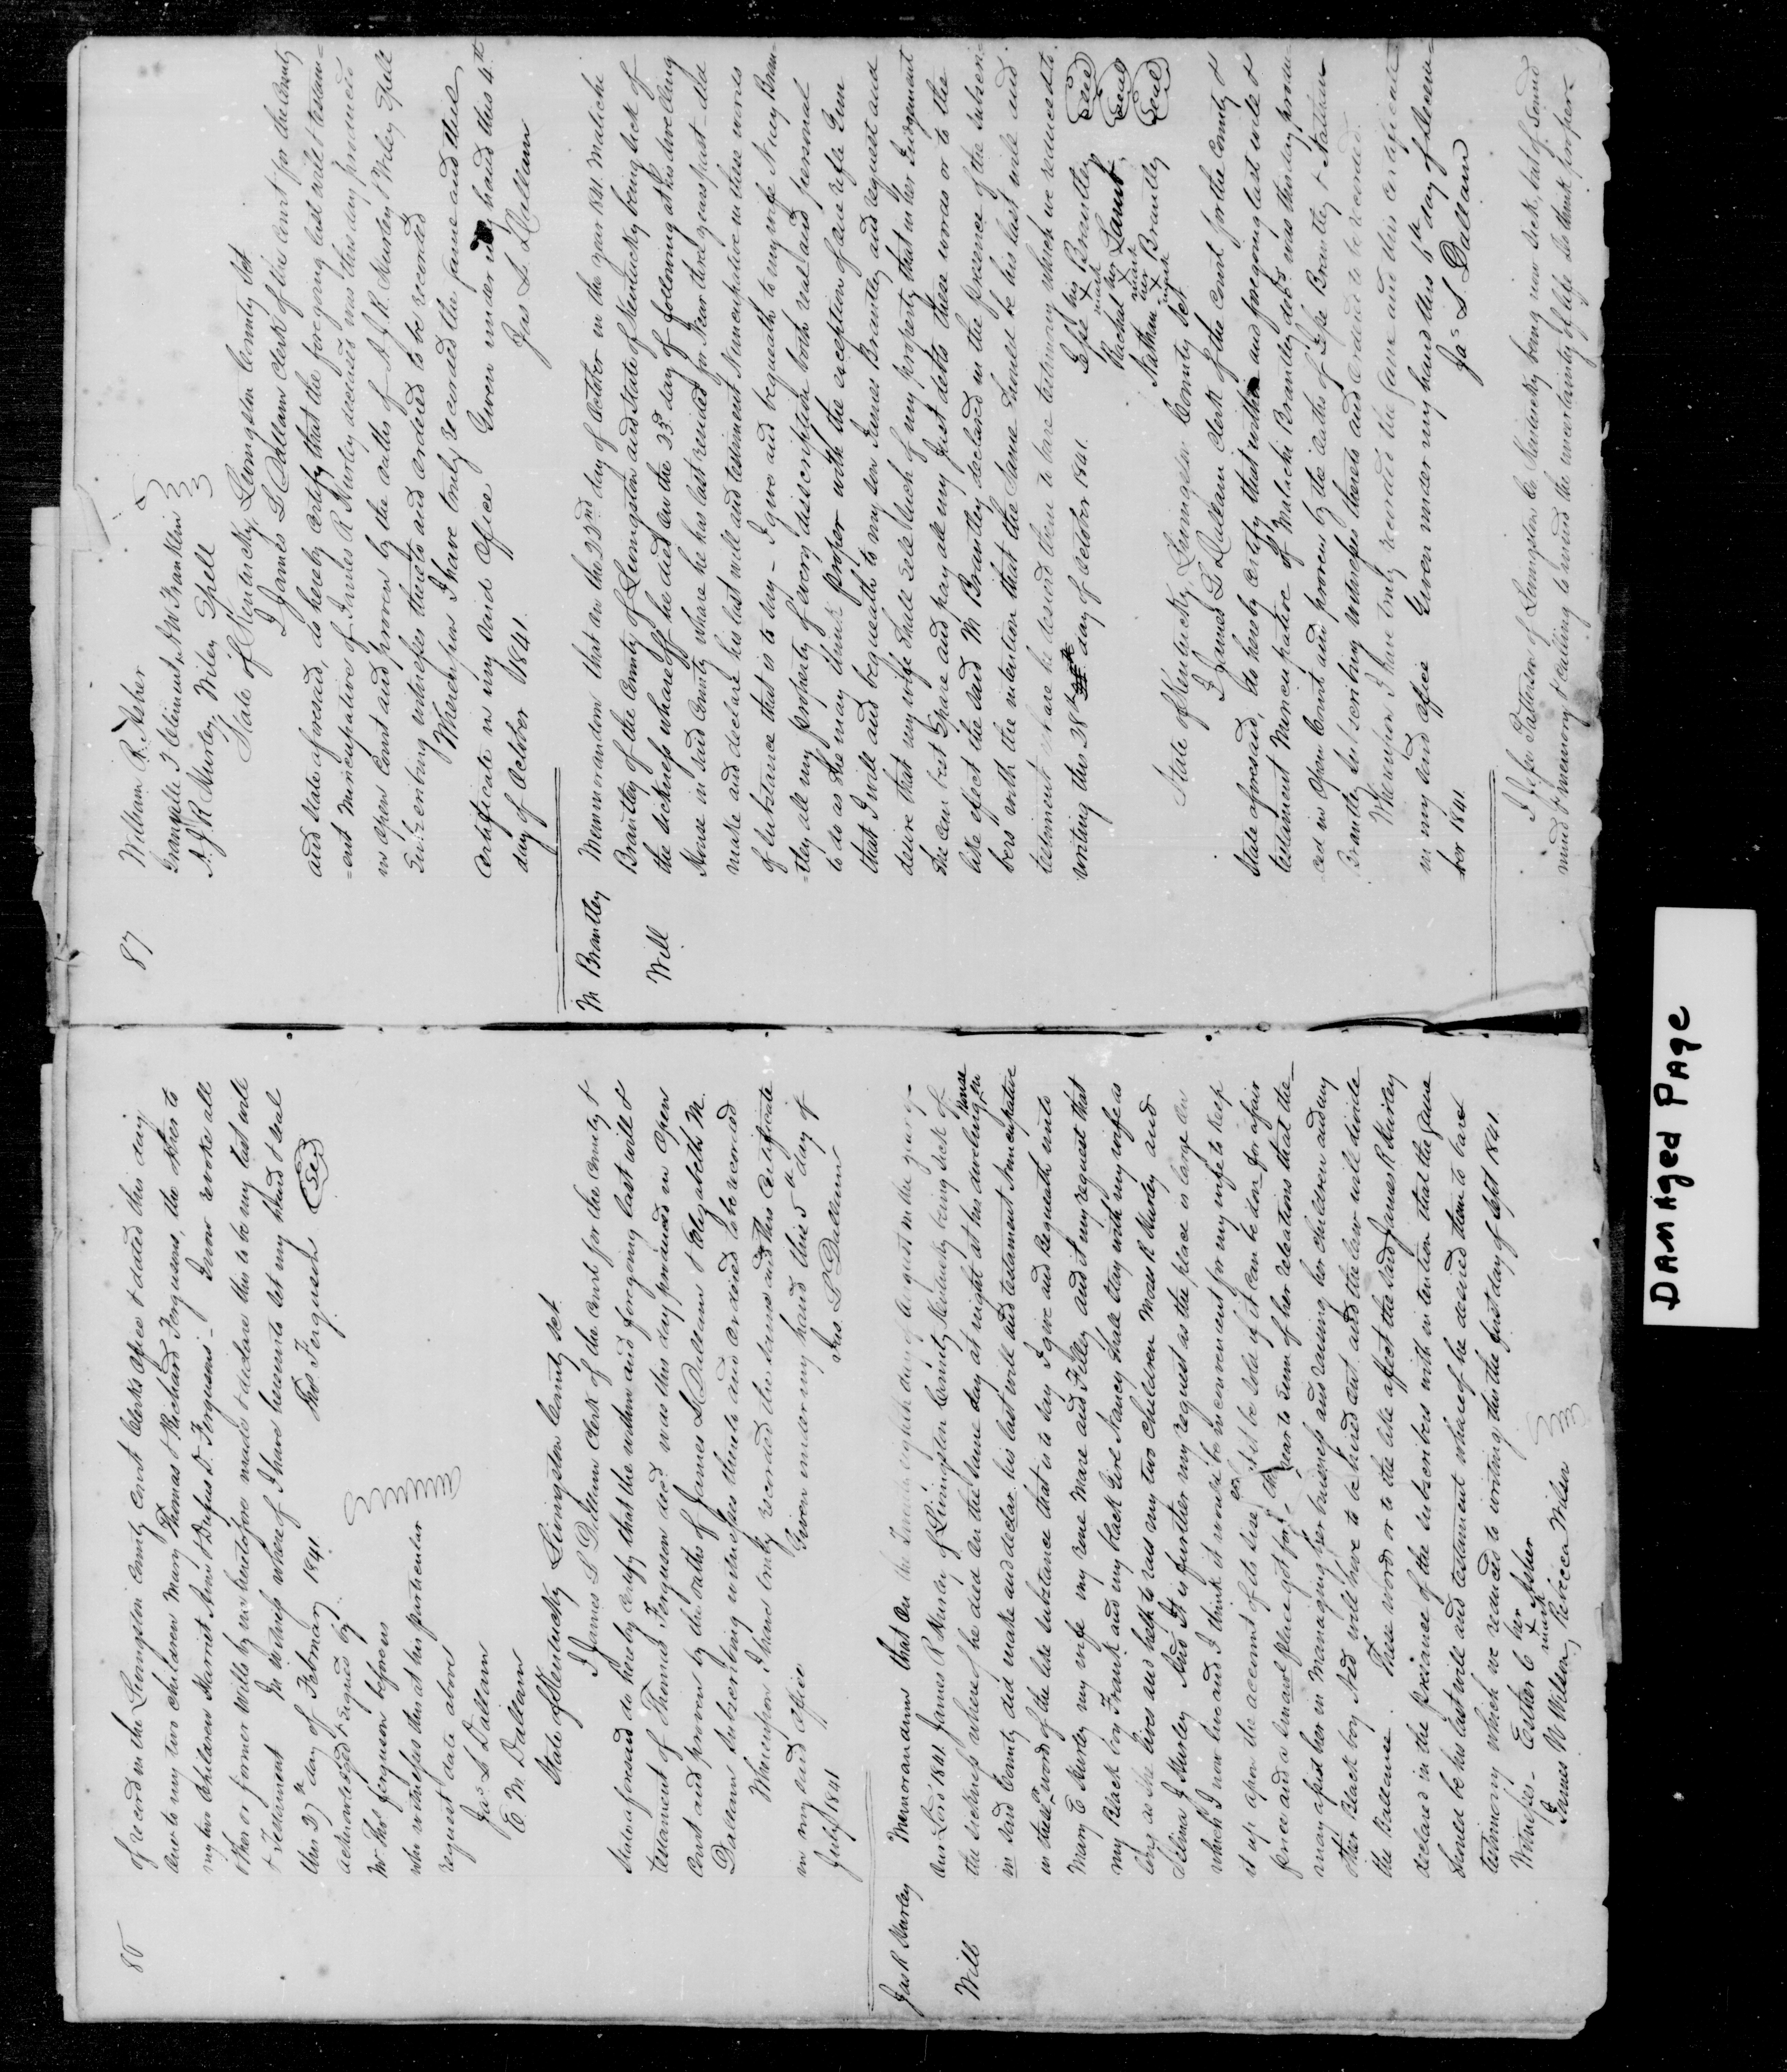 86
of record in the Livingston County Court Clerks office & dated this day
and to my two children Mary Thomas & Richard Ferguson, the other to
my two children Harriet Ann & Rufus D. Ferguson. I now revoke all
other or former Wills by me heretofore made & declare this to be my last will
& testament In witness whereof I have hereunto set my hand & seal
this 27th day of February 1841. Tho Ferguson Seal
acknowledged & signed by
Mr Tho Ferguson before us
who witness this at his particular
request date above
Jas L Dallam
E. M. Dallam
State of Kentucky Livingston County Set.
I James L Dallam Clerk of the court for the County &
State aforesaid do hereby certify that the within and foregoing last will &
testament of Thomas Ferguson decd was this day produced in open
Court and proven by the oaths of James L Dallam & Elizabeth M.
Dallam subscribing witnesses thereto and ordered to be recorded
Whereupon I have truly recorded the same and this certificate
in my said office Given under my hand this 5th day of
July 1841 Jas L Dallam
Jas R Murley Memorandum that on the eighth day of August in the year of
Will our Lord 1841. James R Murley of Livingston County Kentucky being sick of
the sickness whereof he died on the same day at night at his dwelling House
in said County did make and declar his last will and testament Nuncupative
in these words or the like substance that is to say I give and bequeath unto
Mary E Murley my wife my rone Mare and Filley and it my request that
my Black boy Frank and my black Girl Nancy shall stay with my wife as
long as she lives and help to rais my two children Moses R Murley and
Selina J Murley And It is further my request as the place is large on
which I now live and I think it would be inconvenient for my wife to keep
it up upon the account of its size that it be sold if it can be don for a fair
price and a small place got for her near to some of her relations that they
may assist her in managing her business and raising her children and my
other Black boy Ned will have to be hired out and the law will divide
the Ballence. These words or to the like affect the said James R Murley
declared in the presance of the subscribers with intention that the same
should be his last will and testament whereof he desired them to bare
testimony which we reduced to writing this the first day of Sept 1841.
Witness— Esther C her x mark Asher
James W Wilson, Rebecca Wilson
87
William R. Asher
Granville J Clement, A W Franklin
A. J R Murley Wiley Spell
State of Kentucky, Livingston County Set
I James L Dallam Clerk of the Court for the County
and State aforesaid, do hereby certify that the foregoing last will & testam=
=ent Nuncupative of James R Murley deceased was this day produced
in open Court and proven by the oaths of A J R. Murley & Wiley Spell
Subscribing witnesses thereto and ordered to be recorded
Whereupon I have truly recorded the same and this
certificate in my said office Given under my hand this 4th
day of October 1841. Jas L Dallam
M Brantley Memmorandom that on the 22nd day of October in the year 1841. Malichi
Will Brantley of the County of Livingston and State of Kentucky being sick of
the sickness whareoff he died on the 23d day of following at his dwelling
House in said County whare he has last resided for near three years past—did
make and declare his last will and testiment Nuncupative in these words
of substance that is to say— I give and bequeath to my wife Nancy Bran=
=tley all my property of every discription both real and personal
to do as she may think proper with the exception of one rifle Gun
that I will and bequeath to my son James Brantley and request and
desire that my wife shall sell such of my property that in her Judgement
she can best spare and pay all my Just debts these words or to the
like effect the said M Brantley declared in the presence of the subscri=
bers with the intention that the same should be his last will and
testiment whare he desired them to bare testimony which we reduced to
writing this 28th day of October 1841. Jesse his x mark Brantley Seal
Rachael her x mark Lamb Seal
Nathan his x mark Brantley Seal
State of Kentucky, Livingston County Set
I James L Dallam Clerk of the court for the County &
State aforesaid, do hereby certify that within and foregoing last will &
testament Nuncupative of Malichi Brantley decd was this day produ=
ced in Open Court and proven by the oaths of Jesse Brantley & Nathan
Brantley subscribing witnesses thereto and Ordered to be recorded.
Whereupon I have truly recorded the same and this certificate
in my said office Given under my hand this 6th day of Decem=
ber 1841. Jas L Dallam
I Jefse Patterson of Livingston Co Kentucky being now sick, but of sound
mind & memory & calling to mind the uncertainty of life do think proper
DAMAged PAge